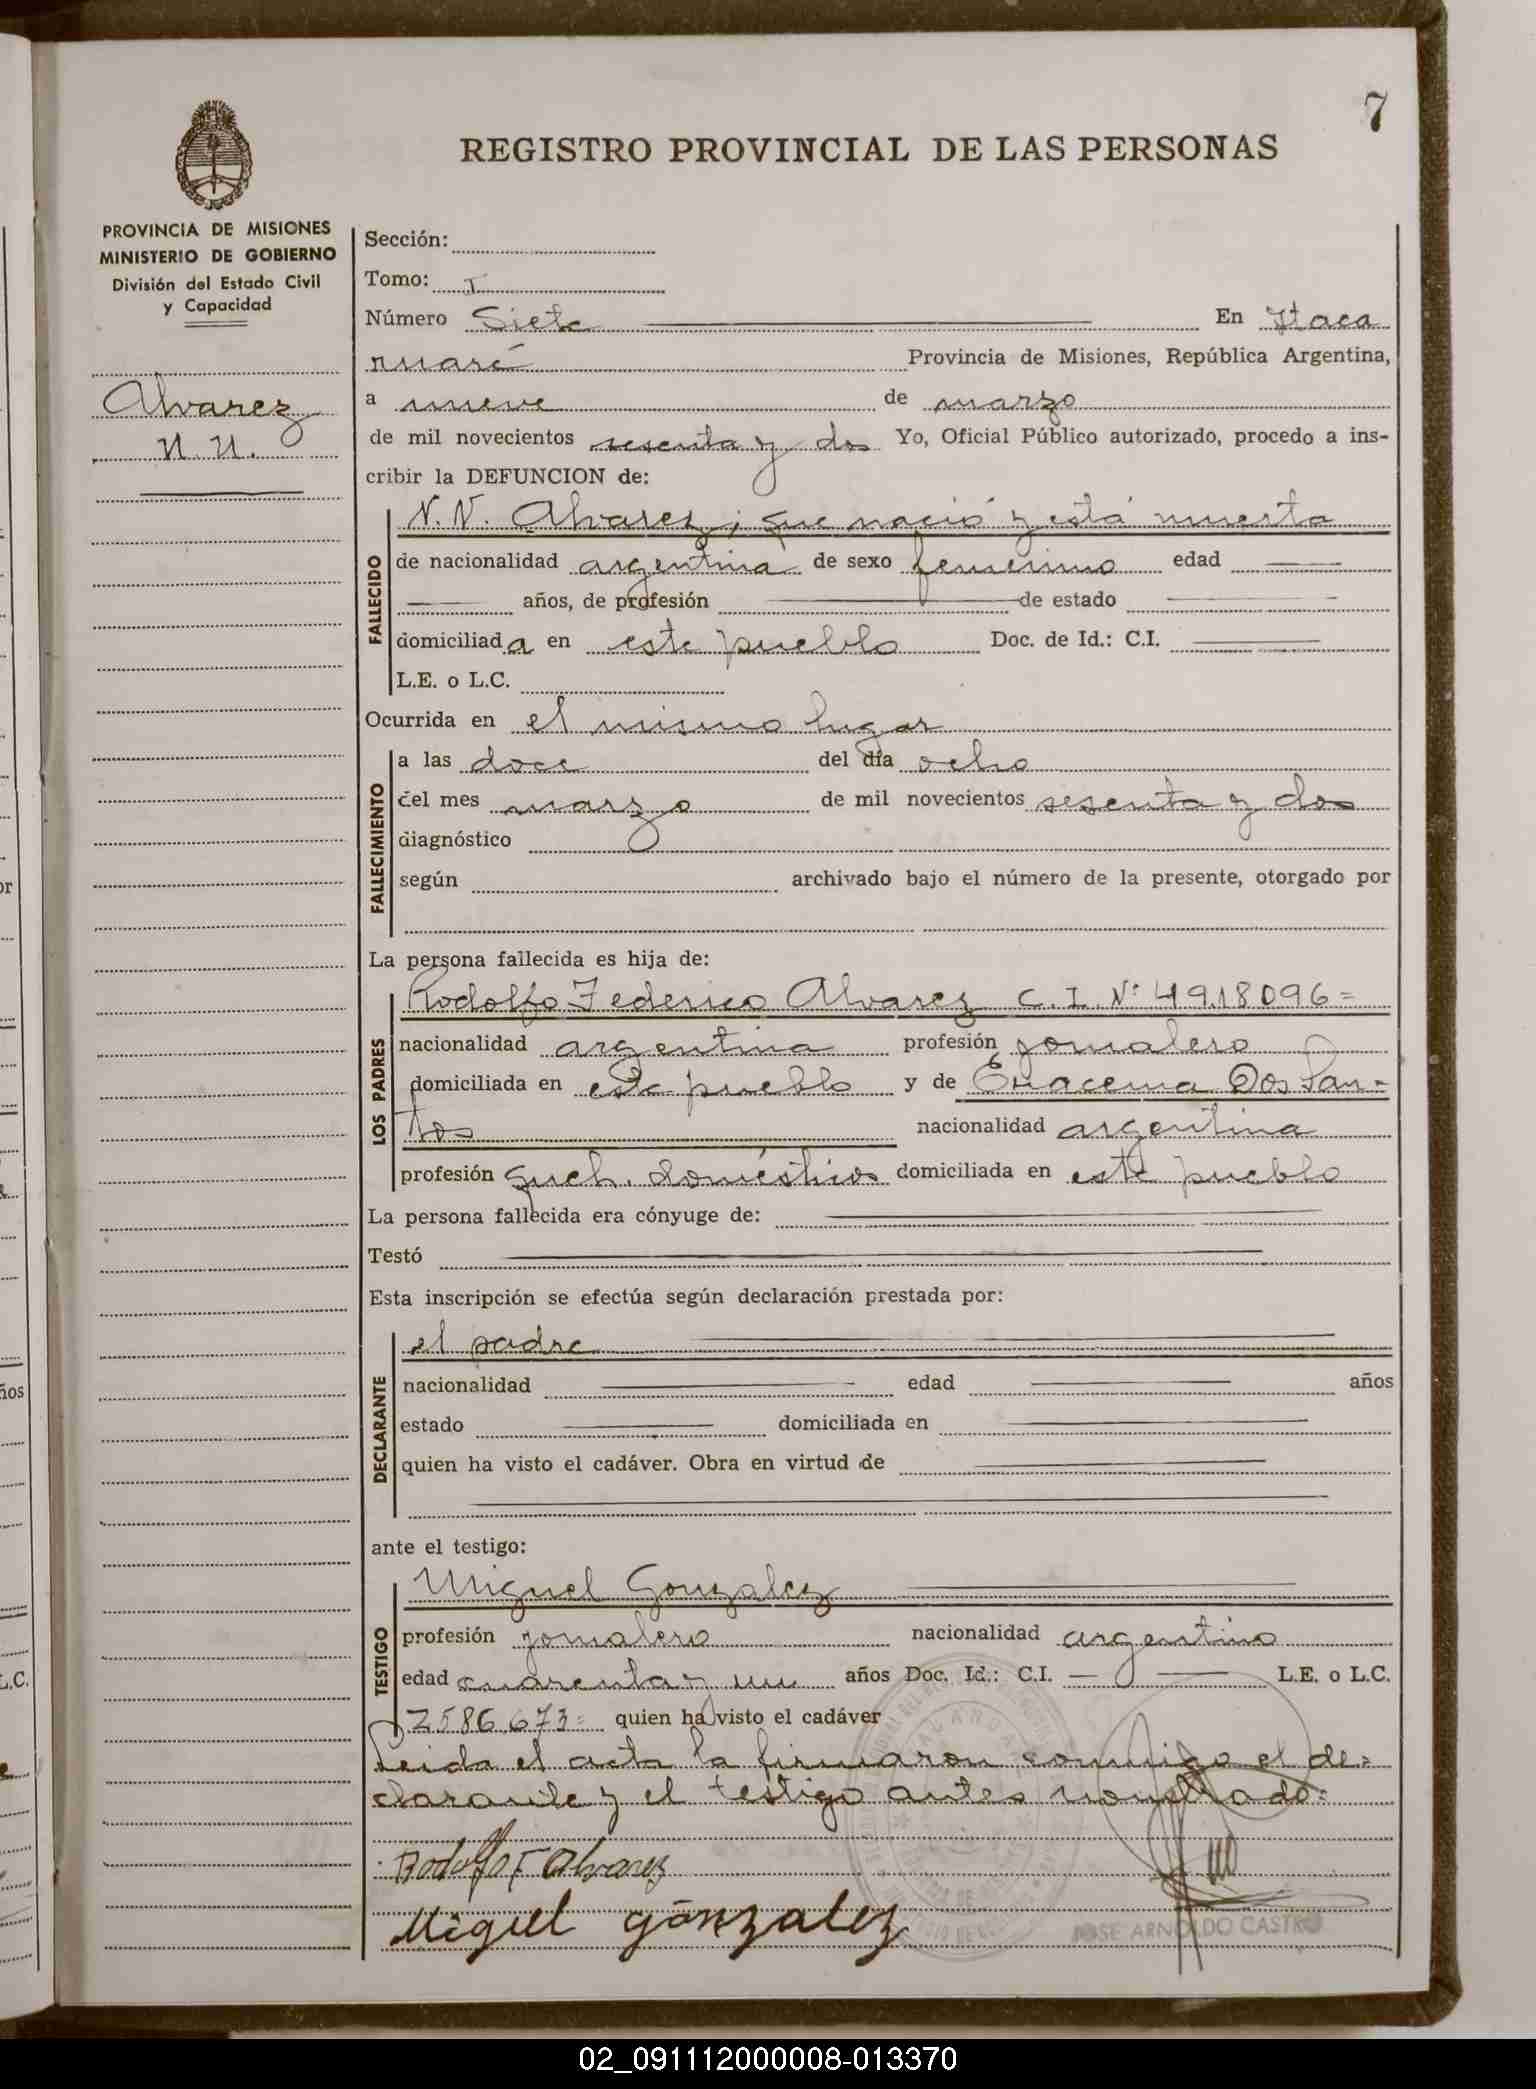 7
REGISTRO PROVINCIAL DE LAS PERSONAS
PROVINCIA DE MISIONES
MINISTERIO DE GOBIERNO
División del Estado Civil
y Capacidad
Alvarez
N.N.
Sección:
Tomo: I
Número Siete En Itaca
ruaré Provincia de Misiones, República Argentina,
a nueve de marzo
de mil novecientos sesenta y dos Yo, Oficial Público autorizado, procedo a ins-
cribir la DEFUNCION de:
FALLECIDO
N.N. Alvarez; que nació y está muerta
de nacionalidad argentina de sexo femenino edad
años, de profesión de estado
domiciliada en este pueblo Doc. de Id.: C.I.
L.E. o L.C.
Ocurrida en el mismo lugar
FALLECIMIENTO
a las doce del día ocho
del mes marzo de mil novecientos sesenta y dos
diagnóstico
según archivado bajo el número de la presente, otorgado por
La persona fallecida es hija de:
LOS PADRES
Rodolfo Federico Alvarez C.I. Nº 4918096=
nacionalidad argentina profesión jornalero
domiciliada en este pueblo y de Eracema Dos San-
tos nacionalidad argentina
profesión queh. domésticos domiciliada en este pueblo
La persona fallecida era cónyuge de:
Testó
Esta inscripción se efectúa según declaración prestada por:
DECLARANTE
el padre
nacionalidad edad años
estado domiciliada en
quien ha visto el cadáver. Obra en virtud de
ante el testigo:
TESTIGO
Miguel Gonzalez
profesión jornalero nacionalidad argentino
edad cuarenta y un años Doc. Id.: C.I. L.E. o L.C.
2586673= quien ha visto el cadáver
Leida el acta la firmaron conmigo el de=
clarante y el testigo antes nombrado=
Rodolfo F Alvarez
Miguel gonzalez
JOSE ARNOLDO CASTRO
02_091112000008-013370